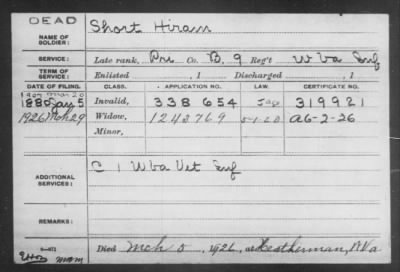 DEAD
NAME OF SOLDIER: Short Hiram
SERVICE: Late rank, Pri Co. B, 9 Reg't W Va Inf
TERM OF SERVICE: Enlisted , 1 Discharged , 1
DATE OF FILING. CLASS. APPLICATION NO. LAW. CERTIFICATE NO.
1880 Jan 5 Invalid, 338 654 319921
1926 Mch 29 Widow, 1243769 5-1-20 A6-2-26
Minor,
ADDITIONAL SERVICES: C 1 W Va Vet Inf
REMARKS:
Died Mch , 1926, at , W Va